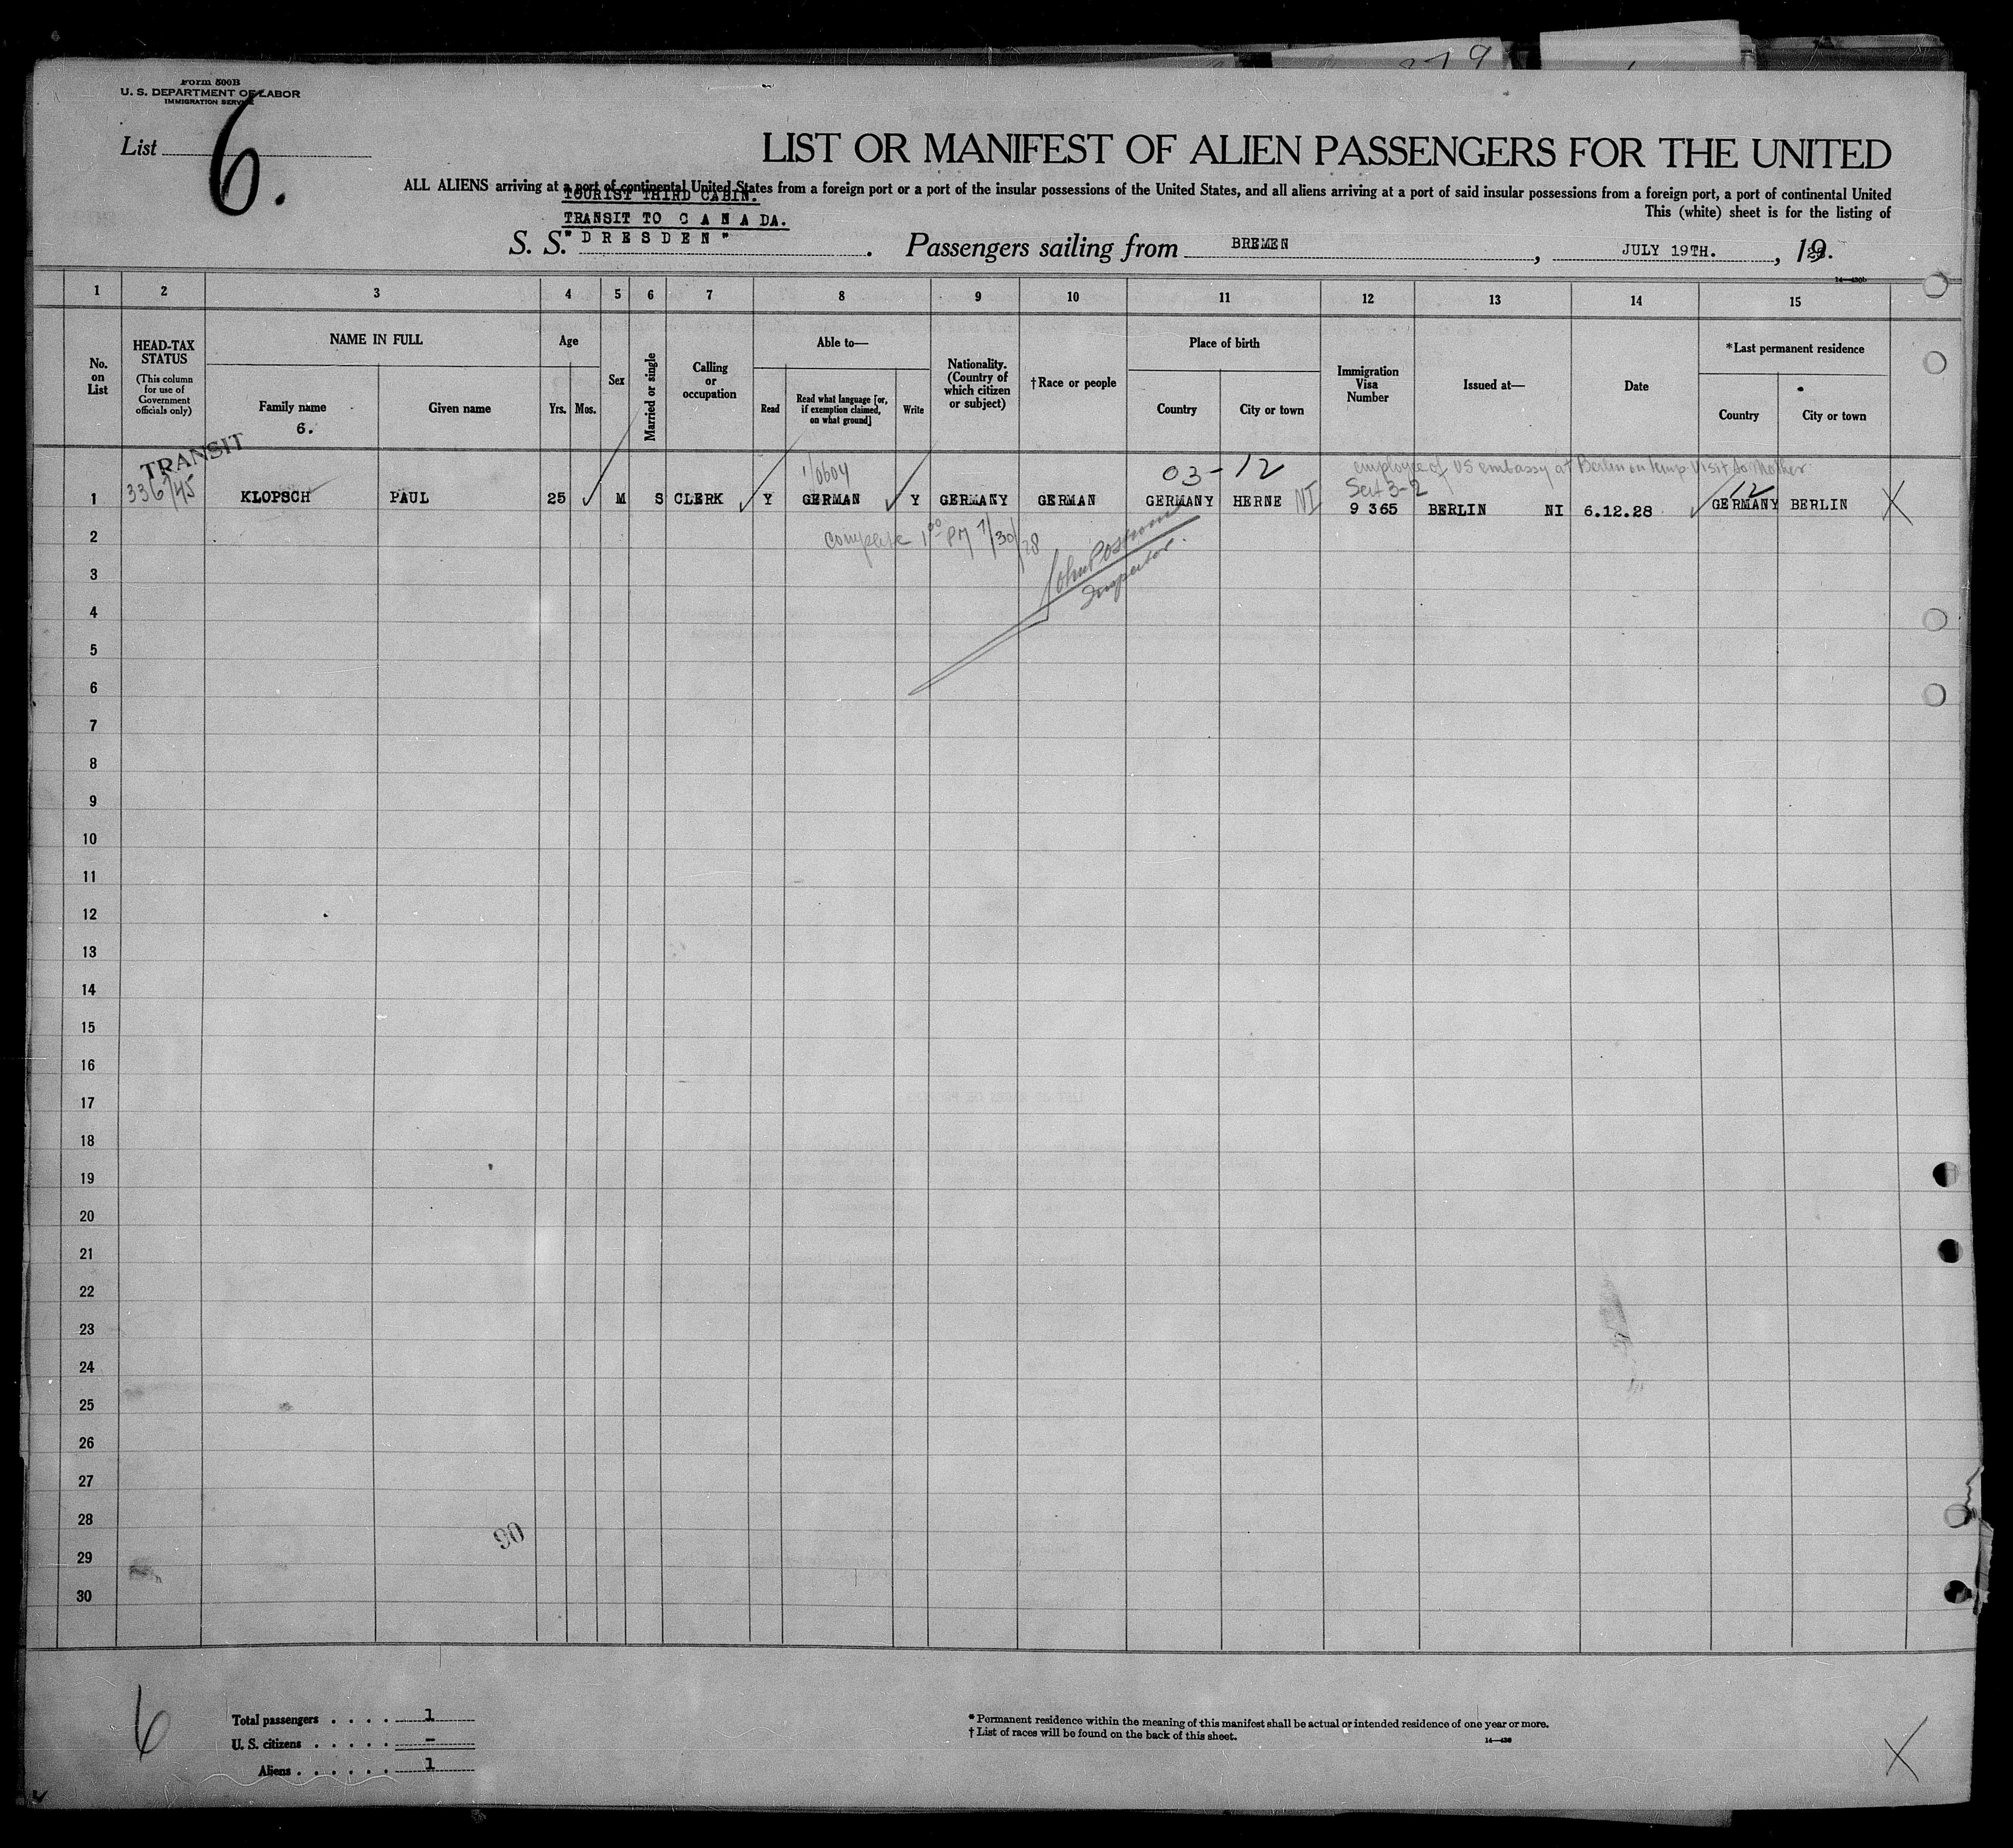 Form 500B
U. S. DEPARTMENT OF LABOR
IMMIGRATION SERVICE
List 6.
LIST OR MANIFEST OF ALIEN PASSENGERS FOR THE UNITED
ALL ALIENS arriving at a port of continental United States from a foreign port or a port of the insular possessions of the United States, and all aliens arriving at a port of said insular possessions from a foreign port, a port of continental United
TOURIST THIRD CABIN.
This (white) sheet is for the listing of
TRANSIT TO C A N A DA.
S. S. "D R E S D E N" . Passengers sailing from BREMEN , JULY 19TH. , 1928.
14—430b
1 2 3 4 5 6 7 8 9 10 11 12 13 14 15
No. on List
HEAD-TAX STATUS
(This column for use of Government officials only)
NAME IN FULL
Family name
6.
Given name
Age
Yrs. Mos.
Sex
Married or single
Calling or occupation
Able to—
Read
Read what language [or, if exemption claimed, on what ground]
Write
Nationality. (Country of which citizen or subject)
†Race or people
Place of birth
Country
City or town
Immigration Visa Number
Issued at—
Date
*Last permanent residence
Country
City or town
TRANSIT
1/0604
03-12
employee of US embassy at Berlin on temp. visit to Mother
336/45
Sect 3-2
12
1 KLOPSCH PAUL 25 M S CLERK Y GERMAN Y GERMANY GERMAN GERMANY HERNE NI 9 365 BERLIN NI 6.12.28 GERMANY BERLIN X
2
Complete 1 00 PM 7/30/28
Inspector.
3
4
5
6
7
8
9
10
11
12
13
14
15
16
17
18
19
20
21
22
23
24
25
26
27
28
90
29
30
6
Total passengers . . . . 1
U. S. citizens . . . . . -
Aliens . . . . . . 1
* Permanent residence within the meaning of this manifest shall be actual or intended residence of one year or more.
† List of races will be found on the back of this sheet.
14—430
X